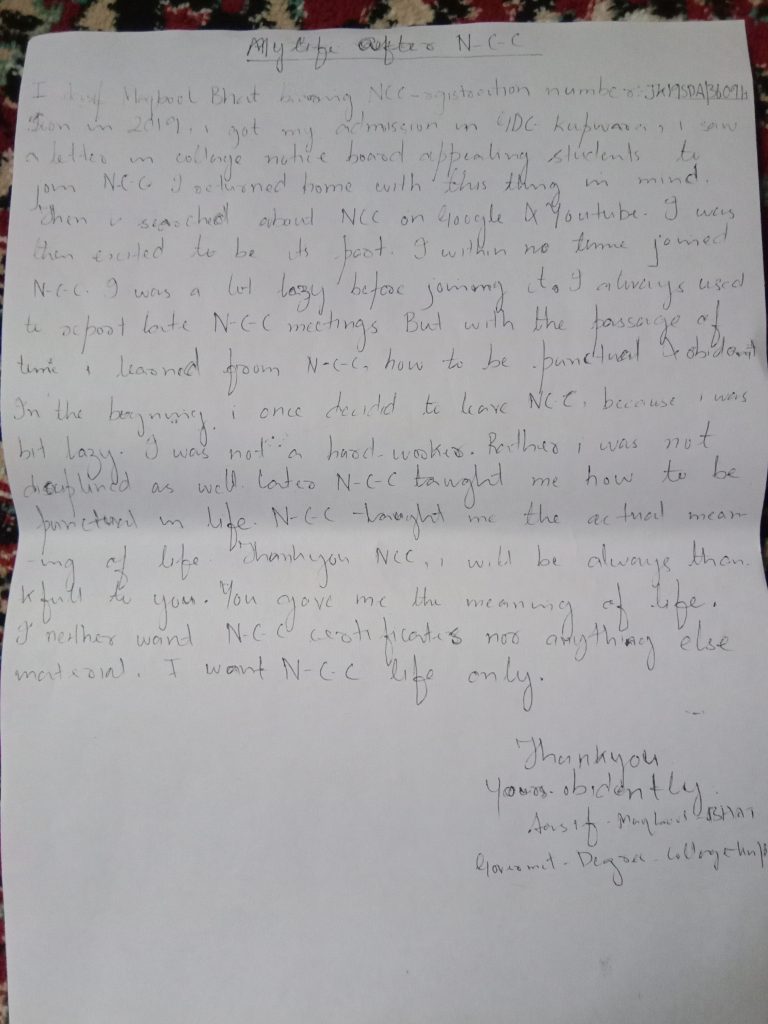 My life after N-C-C
I Aasif Maqbool Bhat bearing NCC-registration number:JK19SDA/3609
in 2019, i got my admission in GDC Kupwara, i saw
a letter in college notice board appealing students to
join N.C.C. I returned home with this thing in mind.
Then i searched about NCC on Google & Youtube. I was
then excited to be its part. I within no time joined
N-C-C. I was a lot lazy before joining it. I always used
to report late N-C-C meetings But with the passage of
time i learned from N-C-C, how to be punctual & obident
In the beginning, i once decided to leave NCC, because i was
bit lazy. I was not a hard-worker. Rather i was not
disciplined as well. Later N-C-C taught me how to be
punctual in life. N-C-C taught me the actual mean-
-ing of life. Thankyou NCC, i will be always than
kfull to you. You gave me the meaning of life.
I neither want N-C-C certificates nor anything else
material. I want N-C-C life only.
Thankyou
Yours-obidently.
Aasif-Maqbool-BHAT
Degree-College-